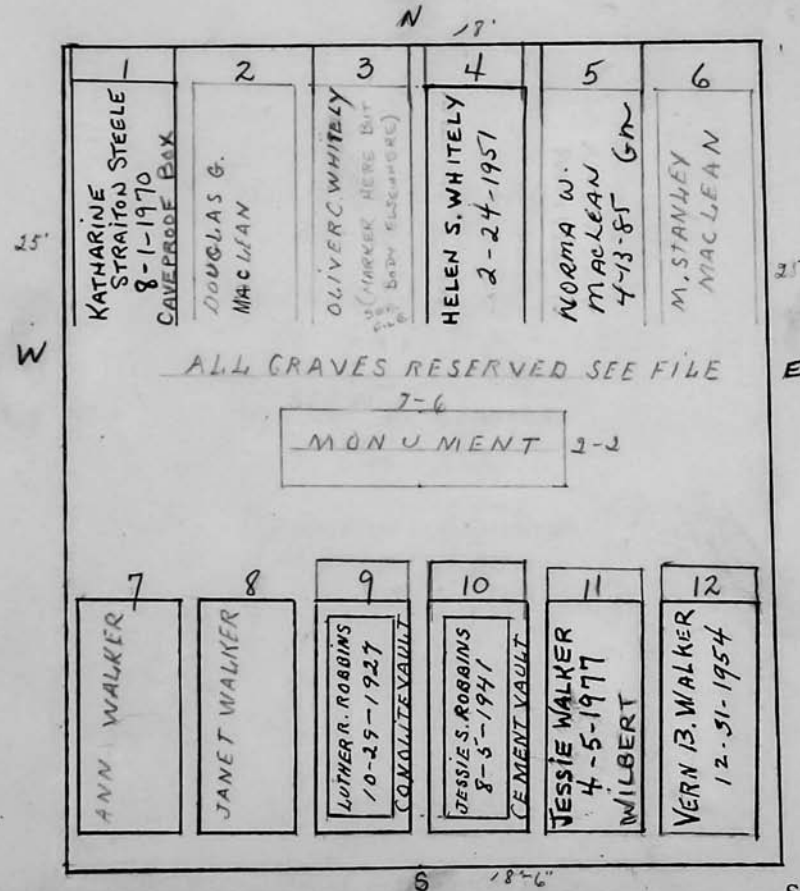 N 18'
1
2
3
4
5
6
KATHARINE
STRAITON STEELE
8-1-1970
CAVEPROOF BOX
DOUGLAS G.
MACLEAN
OLIVER C. WHITELY
(MARKER HERE BUT
BODY ELSEWHERE)
HELEN S. WHITELY
2-24-1951
NORMA W.
MACLEAN
4-13-85 Gm
M. STANLEY
MACLEAN
25'
25
W
E
ALL GRAVES RESERVED SEE FILE
7-6
MONUMENT 2-2
7
8
9
10
11
12
ANN WALKER
JANET WALKER
LUTHER R. ROBBINS
10-29-1927
CONOLITE VAULT
JESSIE S. ROBBINS
8-5-1941
CEMENT VAULT
JESSIE WALKER
4-5-1977
WILBERT
VERN B. WALKER
12-31-1954
S 18'-6"